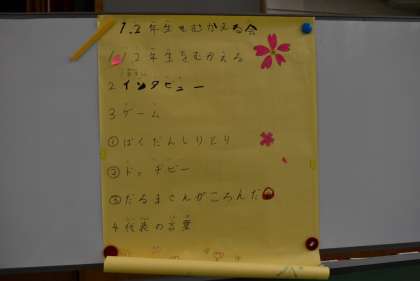 1.2年生をむかえる会
1 1.2年生をむかえる
2 インタビュー
3 ゲーム
①ばくだんしりとり
②ドッヂビー
③だるまさんがころんだ
4 代表の言葉